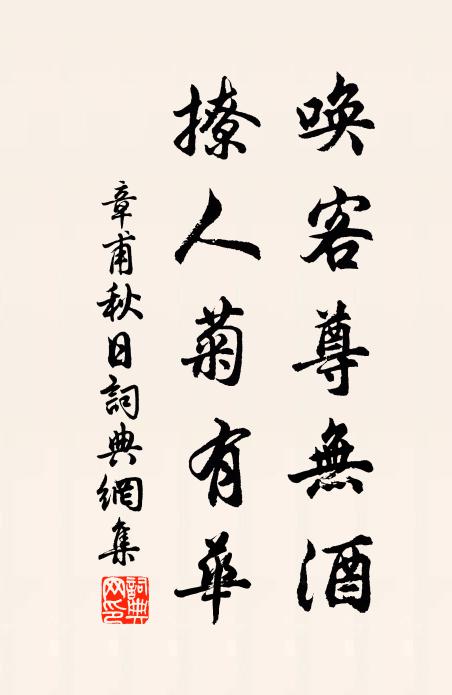 喚客尊無酒
撩人菊有華
章甫秋日詞典網集
詞典网印